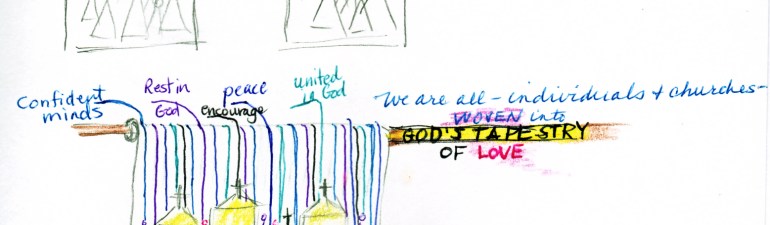 Confident
minds
Rest in
God
encourage
peace
united
in God
We are all - individuals & churches -
WOVEN into
GOD'S TAPESTRY
OF LOVE